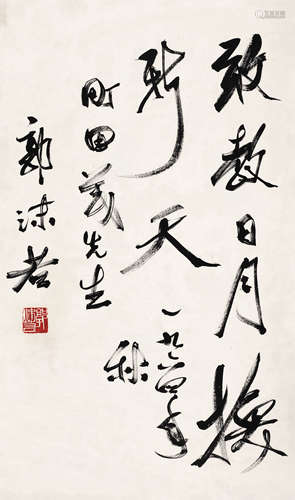 敢教日月换
新天
一九六四年
秋
町田羙先生
郭沫若